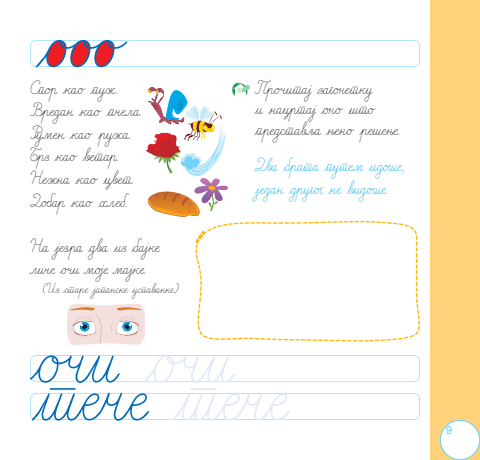 ооо
Спор као пуж.
Вредан као пчела.
Румен као ружа.
Брз као ветар.
Нежна као цвет.
Добар као хлеб.
Прочитај загонетку
и нацртај оно што
представља њено решење.
Два брата путем идоше,
један другог не видоше.
На језра два из бајке
личе очи моје мајке.
(Из старе јапанске успаванке)
очи очи
тече тече
9